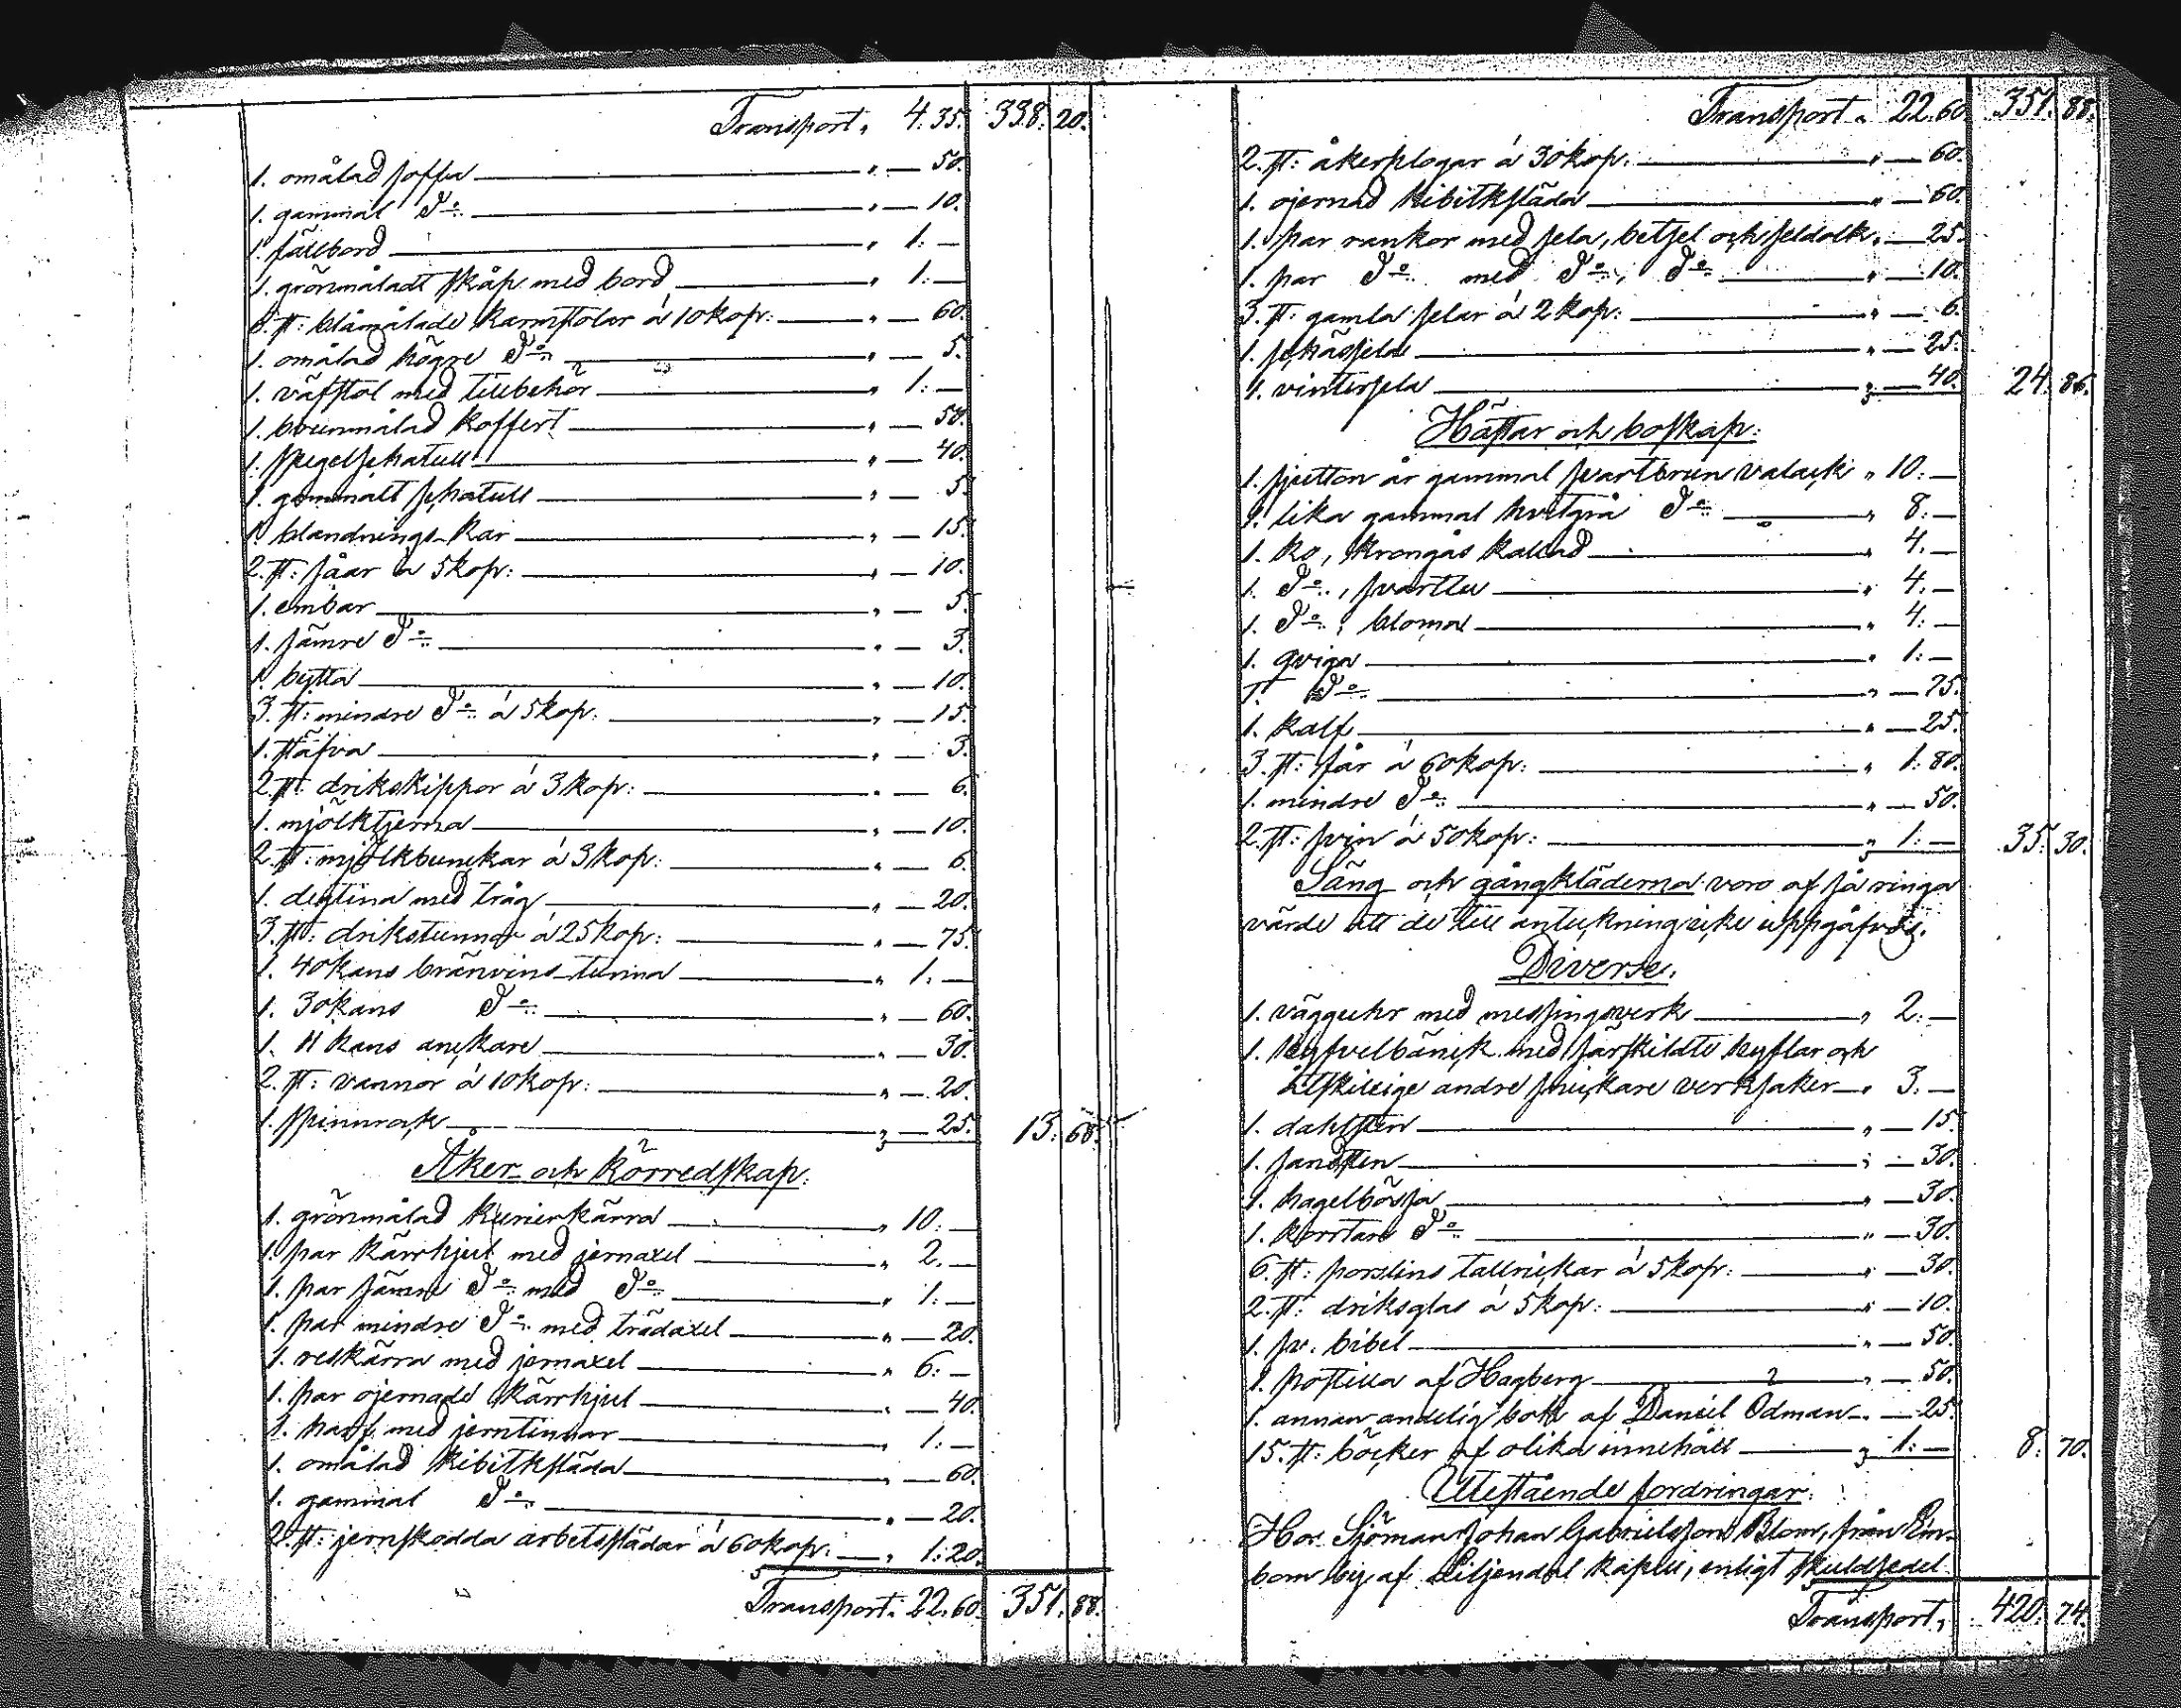 Transport „ 4. 35. 338. 20.
1. omålad soffa „ — 50.
1. gammal D:o „ — 10.
1. fällbord „ 1: —
1. grönmåladt skåp med bord „ 1: —
6. st: blåmålade karmstolar á 10 kop: „ — 60.
1. omålad högre D:o „ — 5.
1. väfstol med tillbehör „ 1: —
1. brunmålad koffert „ — 50.
1. spegelschatull „ — 40.
1. gammalt schatull „ — 5.
1. blandnings-kar „ — 15.
2. st: såar á 5 kop: „ — 10.
1. embar „ — 5.
1. sämre D:o „ — 3.
1. bytta „ — 10.
3. st: mindre D:o á 5 kop: „ — 15.
1. stäfva „ — 3.
2. st: drikskippor á 3 kop: „ — 6.
1. mjölktjerna „ — 10.
2. st: mjölkbunckar á 3 kop: „ — 6.
1. degtina med tråg „ — 20.
3. st: drikstunnor á 25 kop: „ — 75.
1. 40 kans bränvins-tunna „ 1: —
1. 30 kans D:o „ — 60.
1. 11 kans anckare „ — 30.
2. st: vannor á 10 kop: „ — 20.
1. spinnrock „ — 25. 13. 68.
Åker- och körredskap.
1. grönmålad kurierkärra „ 10: —
1. par kärrhjul med jernaxel „ 2. —
1. par sämre D:o med D:o „ 1: —
1. par mindre D:o med trädaxel „ — 20.
1. reskärra med jernaxel „ 6: —
1. par ojernade kärrhjul „ — 40.
1. harf med jerntinnar „ 1: —
1. omålad kibitksläda „ — 60.
1. gammal D:o „ — 20.
2. st: jernskodda arbetsslädar á 60 kop: „ 1: 20.
Transport „ 22. 60. 351. 88.
Transport „ 22. 60. 351. 88.
2. st: åkerplogar á 30 kop: „ — 60.
1. ojernad kibitksläda „ — 60.
1. par rankor med sela, betsel och seldolk „ — 25.
1. par D:o med D:o, D:o „ — 10.
3. st: gamla selar á 2 kop: „ — 6.
1. schäsela „ — 25.
1. vintersela „ — 40. 24. 86.
Hästar och boskap:
1. sjutton år gammal svartbrun valack „ 10: —
1. lika gammal hvitgrå D:o „ 8: —
1. ko, krongås kallad „ 4. —
1. D:o, svartlu „ 4. —
1. D:o, bloma „ 4: —
1. qviga „ 1: —
1. D:o „ — 75.
1. kalf „ — 25.
3. st: får á 60 kop: „ 1: 80.
1. mindre D:o „ — 50.
2. st: svin á 50 kop: „ 1: — 35. 30.
Säng och gångkläderna voro af så ringa
värde att de till anteckning icke uppgåfvos.
Diverse.
1. vägguhr med messingsverk „ 2: —
1. hyfvelbänck med särskildte hyflar och
åtskillige andre snickare verksaker „ 3. —
1. dahlsten „ — 15.
1. sandsten „ — 30.
1. hagelbössa „ — 30.
1. kortare D:o „ — 30.
6. st: porslins tallrickar á 5 kop: „ — 30.
2. st: driksglas á 5 kop: „ — 10.
1. sv. bibel „ — 50.
1. postilla af Hagberg „ — 50.
1. annan andelig bok af Daniel Ödman „ — 25.
15. st: böcker af olika innehåll „ 1: — 8. 70.
Utestående fordringar.
Hos Sjöman Johan Gabrielsson Blom, från Em-
bom by af Liljendal kapell, enligt skuldsedel
Transport „ 420. 74.